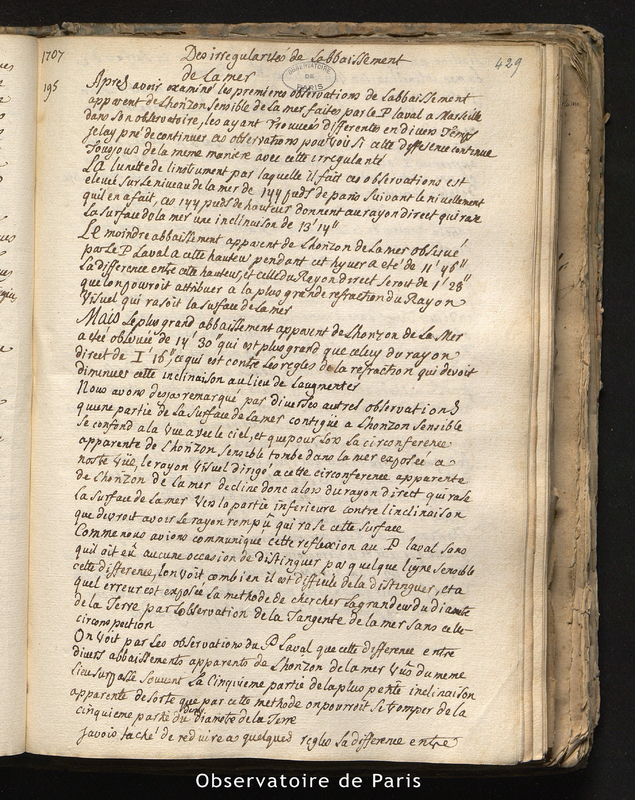 1707
Des irregularités de Labbaissement
429
de La mer
OBSERVATOIRE DE PARIS
195
Apres avoir examiné les premieres observations de Labbaissement
apparent de Lhorizon sensible de La mer faites par le P laval a Marseille
dans son observatoire, les ayant trouvées differentes en divers temps
je lay prié de continuer ces observations pour voir si cette difference continue
Toujours de la meme maniere avec cette irregularité
La lunette de linstrument par laquelle il fait ces observations est
elevée sur Le niveau de la mer de 144 pieds de paris suivant le nivellement
quil en a fait, ces 144 pieds de hauteur donnent au rayon direct qui rase
La surface de la mer une inclinaison de 13' 14"
Le moindre abbaissement apparent de Lhorizon de La mer observé
par le P Laval a cette hauteur pendant cet hyver a eté de 11' 46"
La difference entre cette hauteur, et celle du Rayon direct seroit de 1' 28"
que lon pouroit attribuer a la plus grande refraction du Rayon
Visuel qui rasoit la surface de La mer
Mais Le plus grand abbaissement apparent de Lhorizon de La Mer
a eté observée de 14' 30" qui est plus grand que celuy du rayon
direct de 1' 16" ce qui est contre les regles de la refraction qui devoit
diminuer cette inclinaison au lieu de Laugmenter
Nous avons desja remarqué par diverses autres observations
quune partie de La surface de La mer contigue a Lhorizon sensible
se confond a la vue avec le ciel, et que pour lors La circonference
apparente de Lhorizon sensible tombe dans la mer exposée a
nostre vüe, le rayon visuel dirigé a cette circonference apparente
de Lhorizon de La mer decline donc alors du rayon direct qui rase
la surface de La mer vers la partie inferieure contre linclinaison
que devroit avoir Le rayon rompû qui rase cette surface
Comme nous avions communiqué cette reflexion au P laval sans
quil ait eû aucune occasion de distinguer par quelque ligne sensible
cette difference, lon voit combien il est difficile de la distinguer, et a
quel erreur est exposée la methode de chercher La grandeur du diametre
de la Terre par Lobservation de la Tangente de la mer sans cette
circonspection
On voit par Les observations du P Laval que cette difference entre
divers abbaissements apparents de Lhorizon de la mer vûs du meme
lieu surpasse souvent La Cinquieme partie de la plus petite inclinaison
apparente de sorte que par cette methode on pourroit se tromper de la
cinquieme partie du diametre de la Terre
Javois taché de reduire a quelques regles La difference entre
Observatoire de Paris